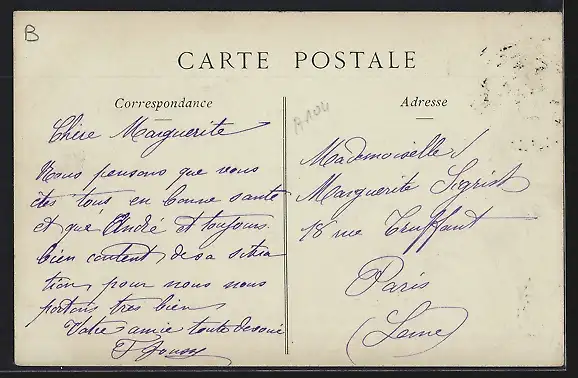 B
CARTE POSTALE
Correspondance
Adresse
A104
Chère Marguerite
Nous pensons que vous
êtes tous en bonne santé
et que André est toujours
bien content de sa situa
tion pour nous nous
portons très bien
Votre amie toute dévouée
Mademoiselle
Marguerite Sigrist
18 rue Truffaut
Paris
(Seine)